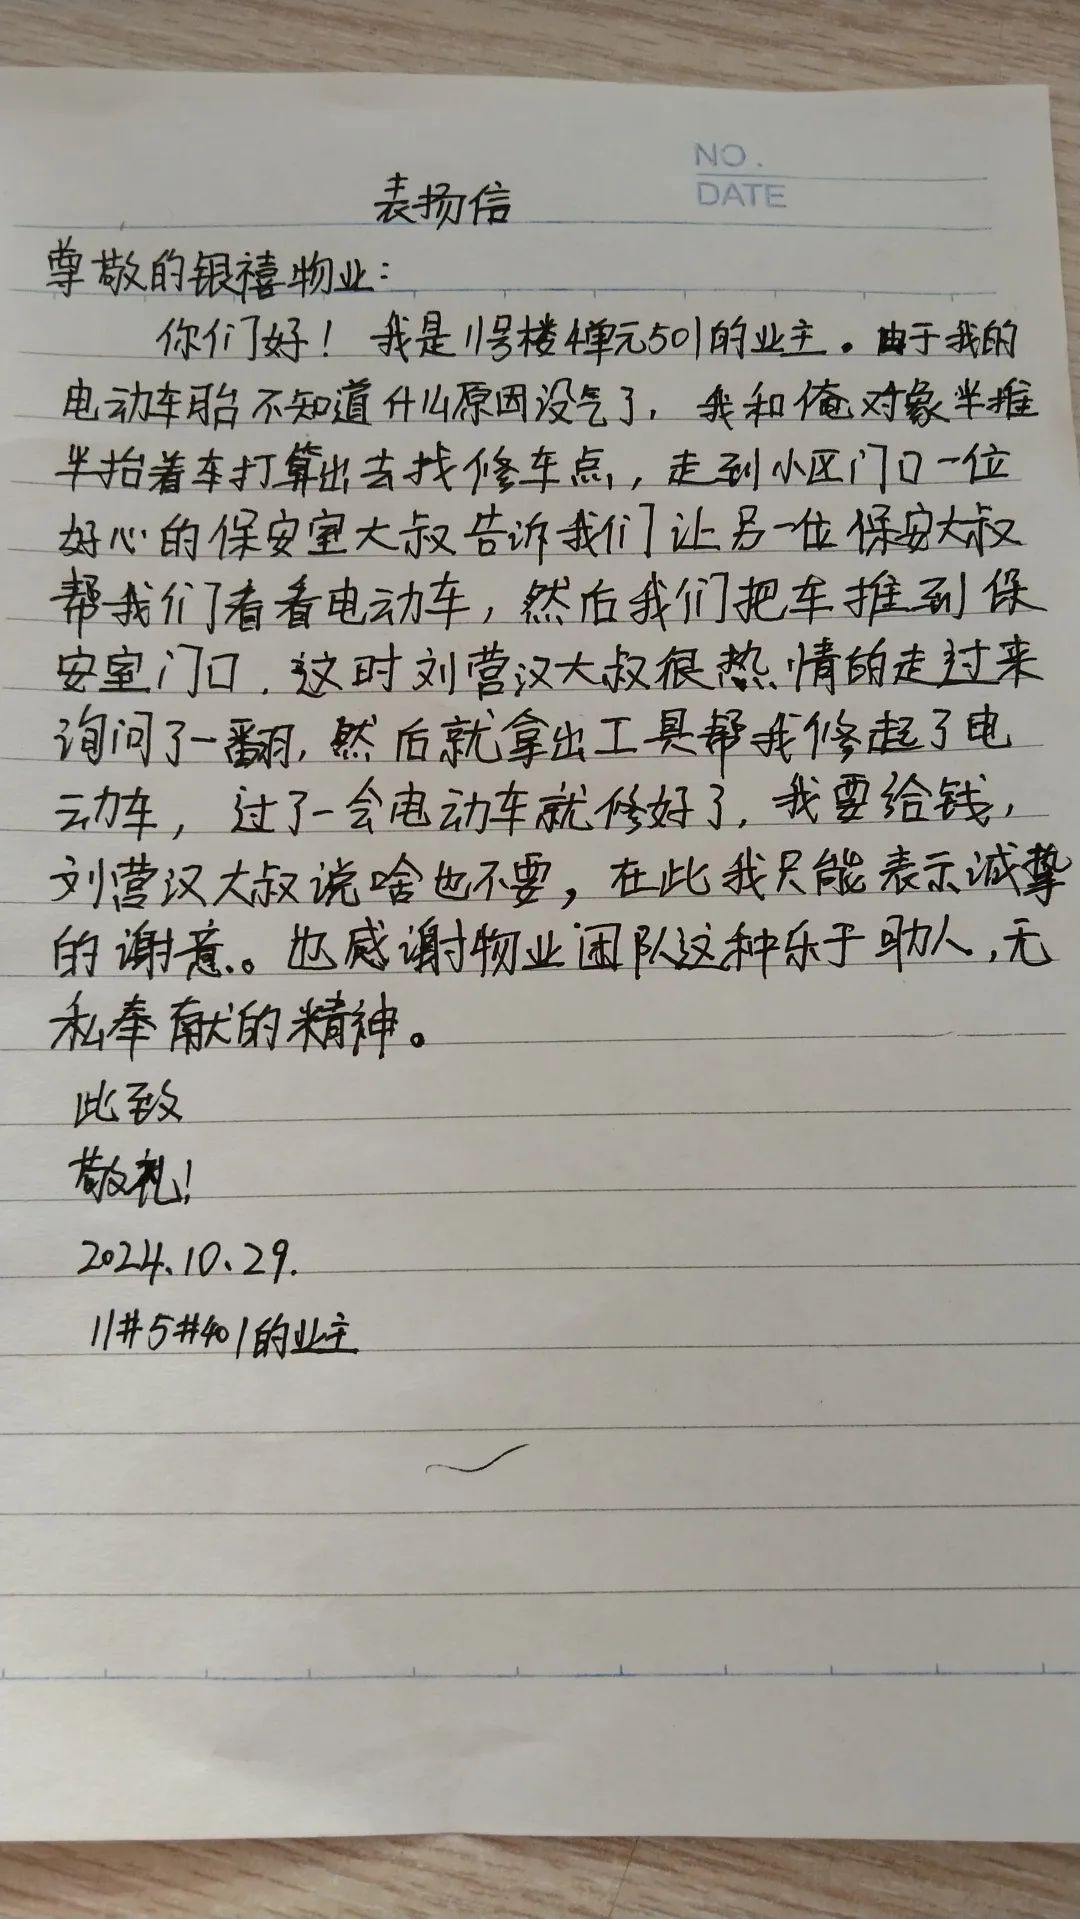 NO.
DATE
表扬信
尊敬的银禧物业：
你们好！我是11号楼4单元501的业主。由于我的
电动车胎不知道什么原因没气了，我和俺对象半推
半抬着车打算出去找修车点，走到小区门口一位
好心的保安室大叔告诉我们让另一位保安大叔
帮我们看看电动车，然后我们把车推到保
安室门口，这时刘营汉大叔很热情的走过来
询问了一翻，然后就拿出工具帮我修起了电
动车，过了一会电动车就修好了，我要给钱，
刘营汉大叔说啥也不要，在此我只能表示诚挚
的谢意。也感谢物业团队这种乐于助人，无
私奉献的精神。
此致
敬礼！
2024.10.29.
11#5#401的业主